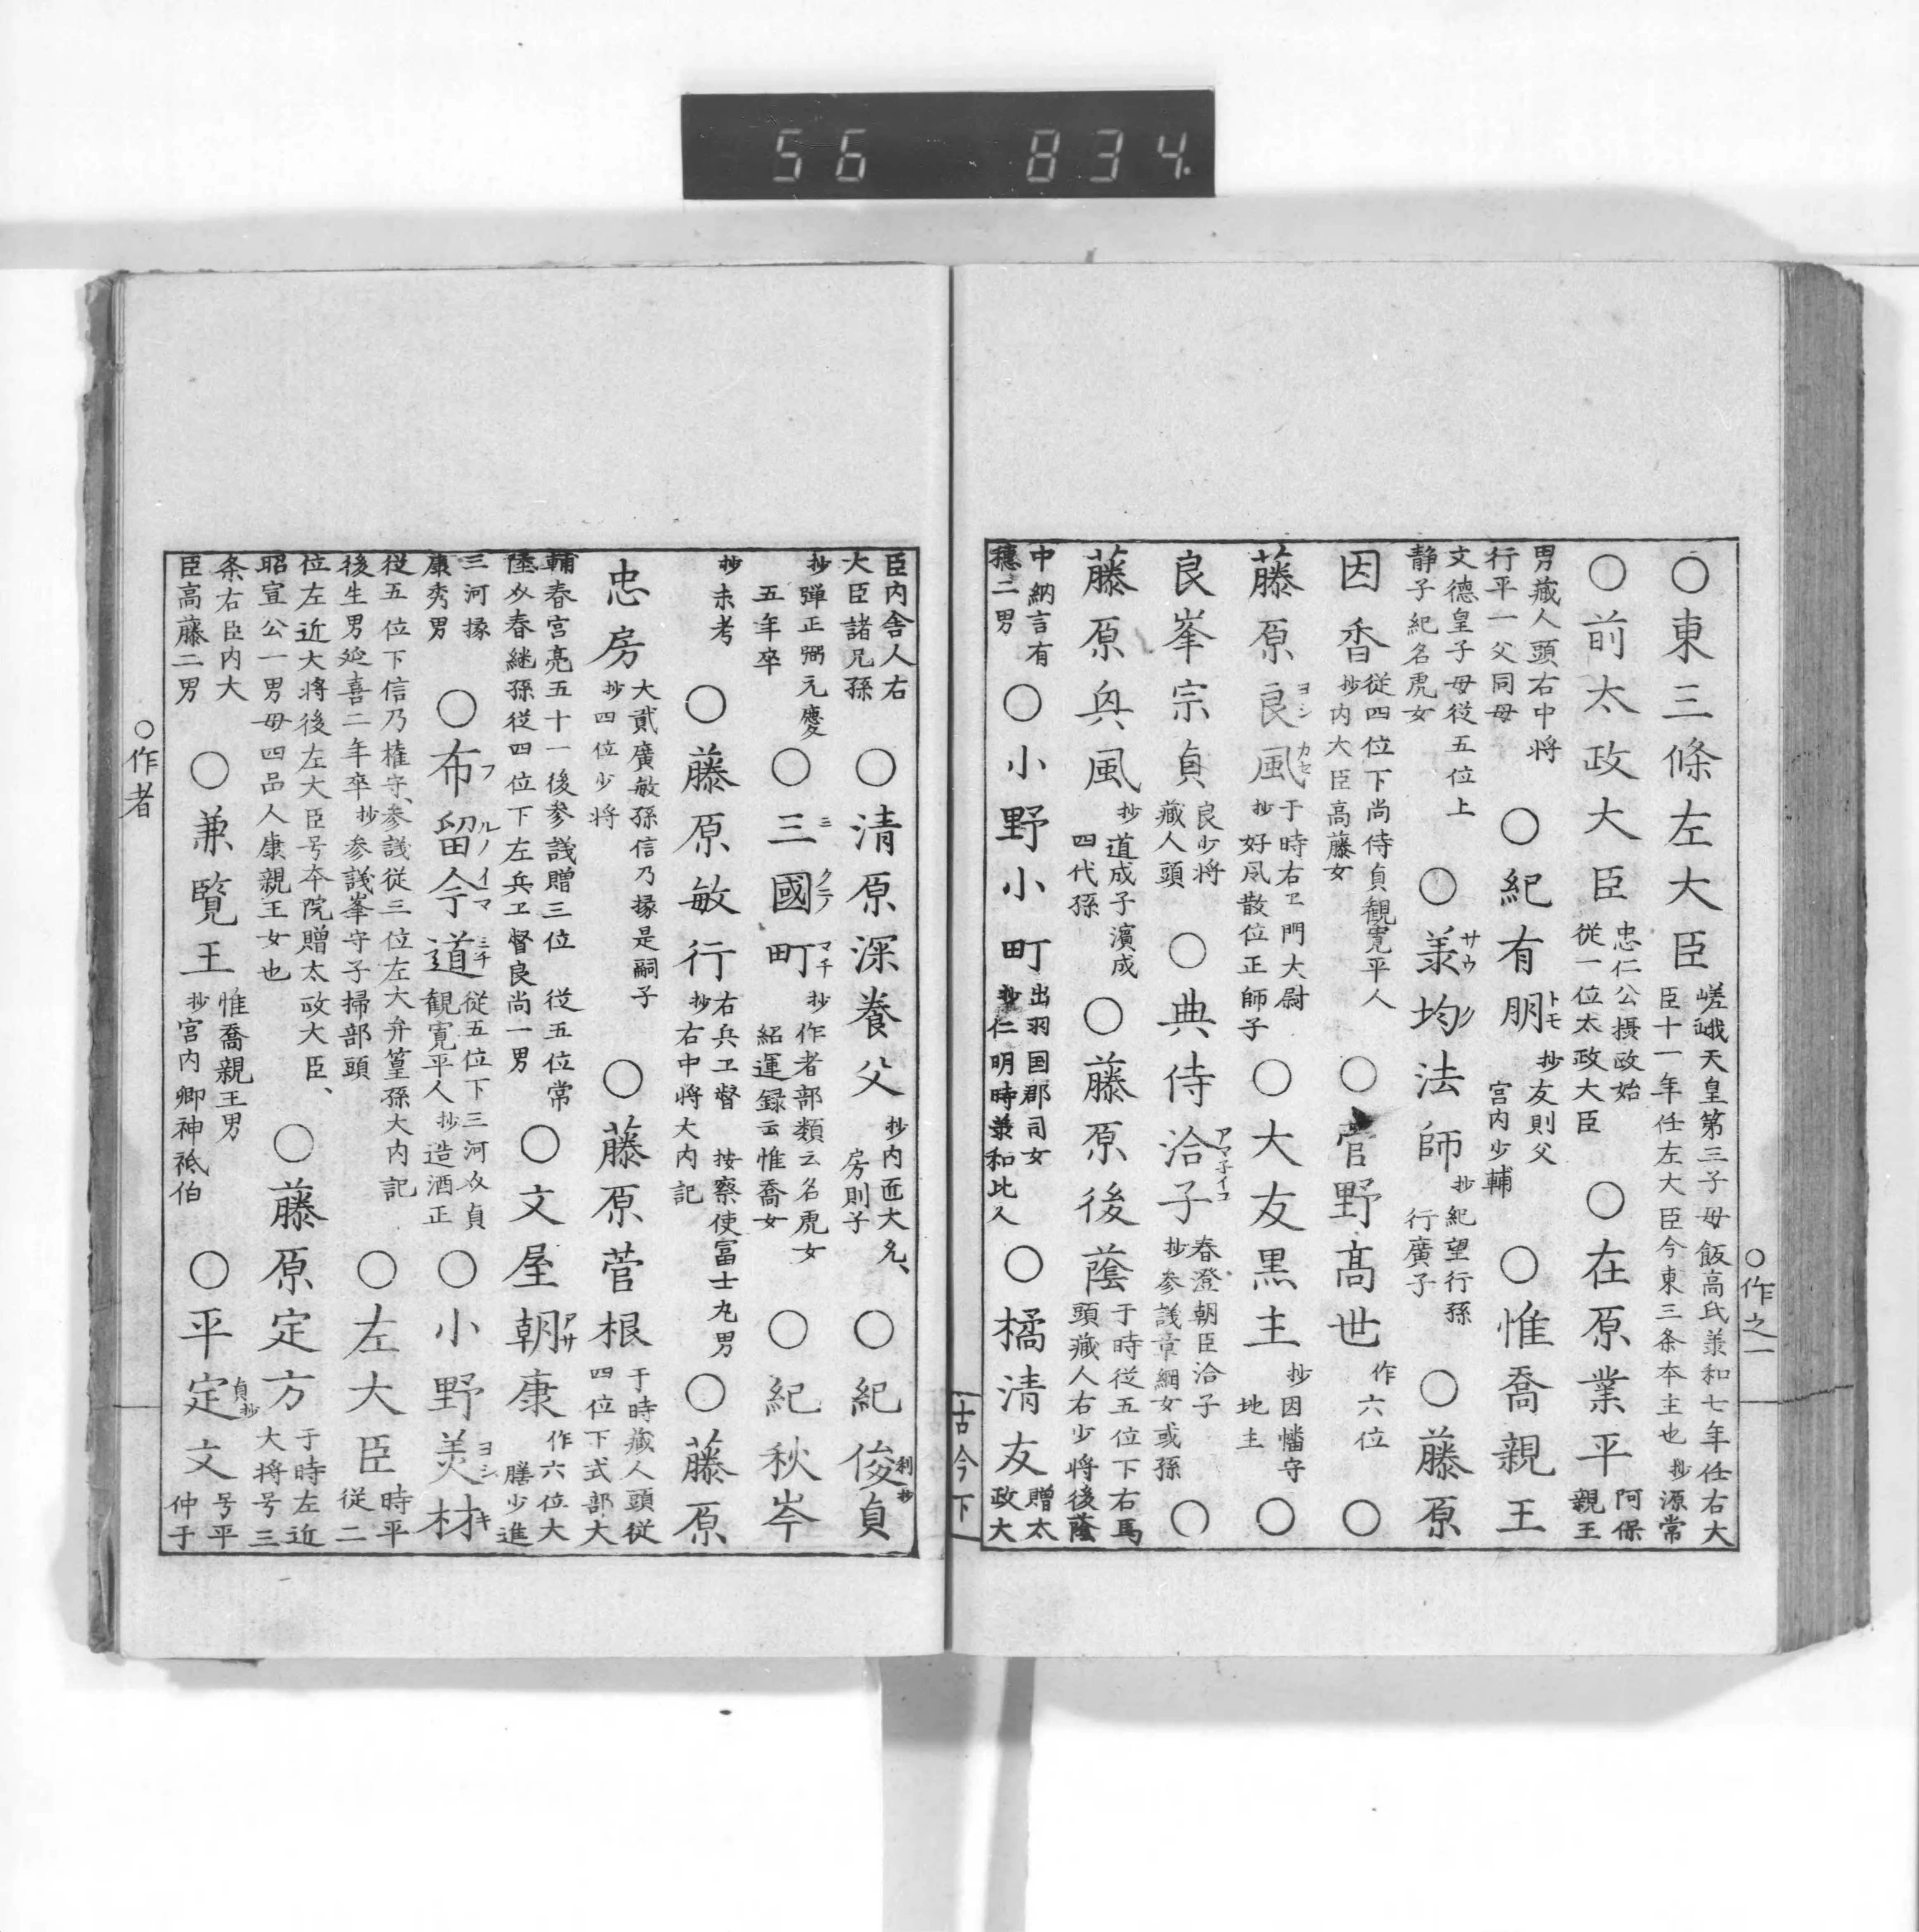 56 834.
○作之一
○東三條左大臣 嵯峨天皇第三子母飯高氏羕和七年任右大臣十一年任左大臣今東三条夲主也 抄源常
○前太政大臣 忠仁公摂政始従一位太政大臣 ○在原業平 阿保親王
男藏人頭右中将行平一父同母 ○紀有朋トモ 抄友則父宮内少輔 ○惟喬親王
文德皇子母従五位上静子紀名虎女 ○羕サウ均ク法師 抄紀望行孫行廣子 ○藤原
因香 従四位下尚侍貞観寛平人抄内大臣高藤女 ○菅野髙世 作六位 ○
藤原良ヨシ風カセ 于時右卫門大尉抄好風散位正師子 ○大友黒主 抄因幡守地主 ○
良峯宗貞 良少将藏人頭 ○典侍洽子アマ子イコ 春澄朝臣洽子抄参議章綱女或孫 ○
藤原興風 抄道成子濱成四代孫 ○藤原後蔭 于時従五位下右馬頭藏人右少将後蔭
中納言有穗二男 ○小野小町 出羽国郡司女抄仁明時羕和比人 ○橘清友 贈太政大
古今下
臣内舎人右大臣諸兄孫 ○清原深養父 抄内匝大允、房則子 ○紀俊利抄貞
抄弾正弼元慶五年卒 ○三ミ國クニノ町マチ 抄作者部類云名虎女紹運録云惟喬女 ○紀秋岑
抄未考 ○藤原敏行 右兵卫督 按察使富士丸男抄右中将大内記 ○藤原
忠房 大貮廣敏孫信乃掾是嗣子抄四位少将 ○藤原菅根 于時藏人頭従四位下式部大
輔春宮亮五十一後参議贈三位 従五位常陸𠆢春継孫従四位下左兵卫督良尚一男 ○文屋朝アサ康 作六位大膳少進
三河掾康秀男 ○布フ留ルノ今イマ道ミチ 従五位下三河𠆢貞観寛平人 抄造酒正 ○小野美ヨシ材キ
従五位下信乃権守、参議従三位左大弁篁孫大内記後生男延喜二年卒 抄参議峯守子掃部頭 ○左大臣 時平従二
位左近大将後左大臣号夲院贈太政大臣、昭宣公一男母四品人康親王女也 ○藤原定方 于時左近大将号三
条右臣内大臣高藤二男 ○兼覧王 惟喬親王男抄宮内卿神祇伯 ○平定貞抄文 号平仲于
○作者